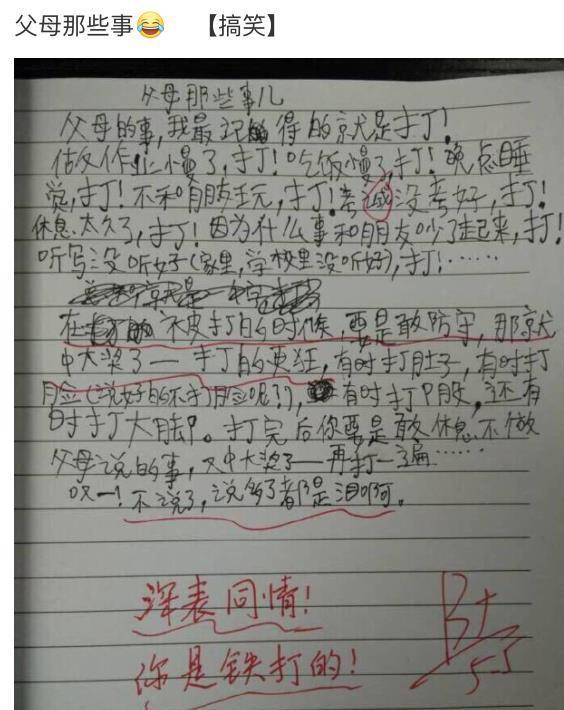 父母那些事😂 【搞笑】
父母那些事儿
父母的事,我最记得的就是打!
做作业慢了,打!吃饭慢了,打!晚点睡
觉,打!不和朋友玩,打!考试没考好,打!
休息太久了,打!因为什么事和朋友吵了起来,打!
听写没听好(家里,学校里没听好),打!……
在被打的时候,要是敢防守,那就
中大奖了——打的更狂,有时打肚子,有时打
脸(说好的不打脸呢?),有时打屁股,还有
时打大脚。打完后你要是敢休息不做
父母说的事,又中大奖了——再打一遍……
哎!不说了,说多了都是泪啊。
深表同情!
你是铁打的!
B+
5.3